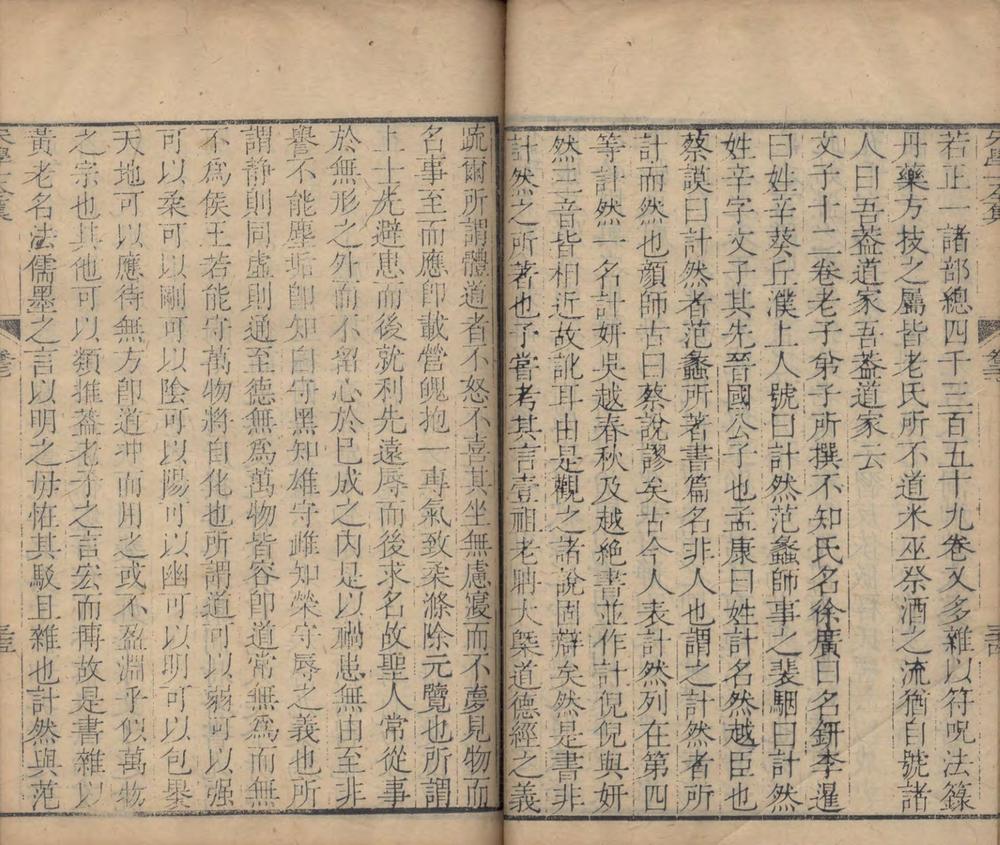 若正一諸部總四千三百五十九卷又多雜以符呪法籙
丹藥方技之屬皆老氏所不道米巫祭酒之流猶自號諸
人曰吾葢道家吾葢道家云
文子十二卷老子弟子所撰不知氏名徐廣曰名鈃李暹
曰姓辛葵丘濮上人號曰計然范蠡師事之裴駰曰計然
姓辛字文子其先晉國公子也孟康曰姓計名然越臣也
蔡謨曰計然者范蠡所著書篇名非人也謂之計然者所
計而然也顏師古曰蔡說謬矣古今人表計然列在第四
等計然一名計妍吳越春秋及越絕書並作計倪倪與妍
然三音皆相近故訛耳由是觀之諸說固辯矣然是書非
計然之所著也予嘗考其言壹祖老聃大槩道德經之義
疏爾所謂體道者不怒不喜其坐無慮寢而不夢見物而
名事至而應卽載營魄抱一專氣致柔滌除元覽也所謂
上士先避患而後就利先遠辱而後求名故聖人常從事
於無形之外而不留心於已成之內是以禍患無由至非
譽不能塵垢卽知白守黑知雄守雌知榮守辱之義也所
謂靜則同虛則通至德無爲萬物皆容卽道常無爲而無
不爲侯王若能守萬物將自化也所謂道可以弱可以强
可以柔可以剛可以陰可以陽可以幽可以明可以包褁
天地可以應待無方卽道冲而用之或不盈淵乎似萬物
之宗也其他可以類推葢老子之言宏而博故是書雜以
黃老名法儒墨之言以明之毋怪其駁且雜也計然與范